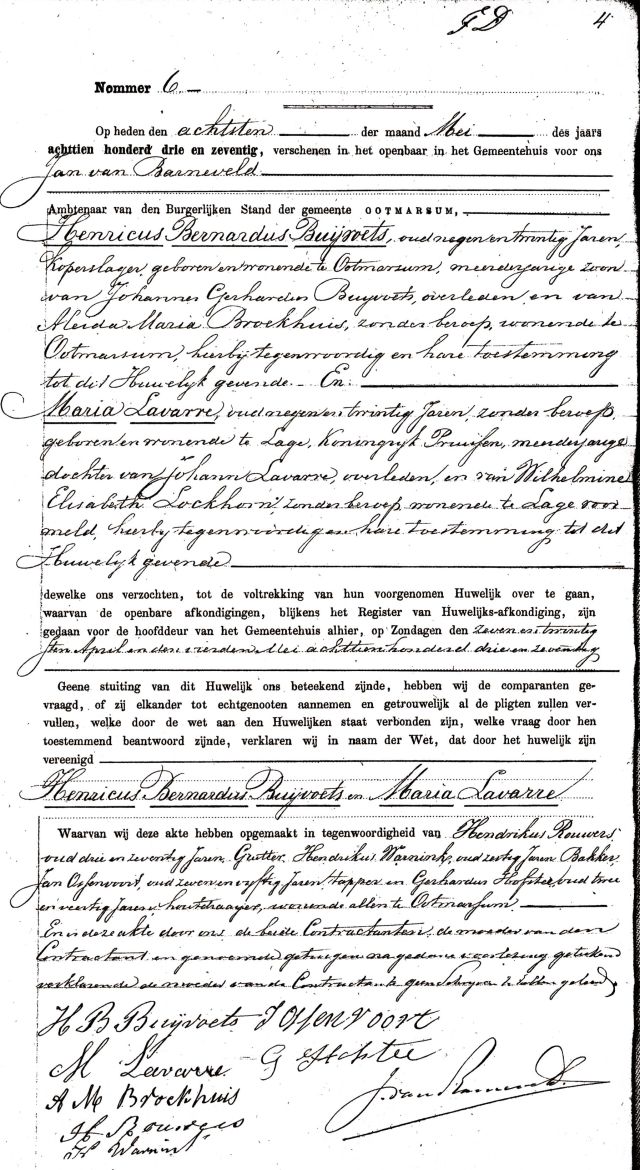 FD 4
Nommer 6
Op heden den achtsten der maand Mei des jaars
achttien honderd drie en zeventig, verschenen in het openbaar in het Gemeentehuis voor ons
Jan van Barneveld
Ambtenaar van den Burgerlijken Stand der gemeente OOTMARSUM,
Henricus Bernardus Buijvoets, oud negen en twintig Jaren
Koperslager, geboren en wonende te Ootmarsum, meerderjarige zoon
van Johannes Gerhardus Buijvoets, overleden en van
Aleida Maria Brockhuis, zonder beroep, wonende te
Ootmarsum, hierbij tegenwoordig en hare toestemming
tot dit Huwelijk gevende. En
Maria Lavarre, oud negen en twintig Jaren, zonder beroep,
geboren en wonende te Lage, Koningrijk Pruissen, meerderjarige
dochter van Johann Lavarre, overleden, en van Wilhelmine
Elisabeth Lockhorn, zonder beroep wonende te Lage voor
meld, hierbij tegenwoordig en hare toestemming tot dit
Huwelijk gevende
dewelke ons verzochten, tot de voltrekking van hun voorgenomen Huwelijk over te gaan,
waarvan de openbare afkondigingen, blijkens het Register van Huwelijks-afkondiging, zijn
gedaan voor de hoofddeur van het Gemeentehuis alhier, op Zondagen den zeven en twintig
sten April en den vierden Mei achttienhonderd drie en zeventig
Geene stuiting van dit Huwelijk ons beteekend zijnde, hebben wij de comparanten ge-
vraagd, of zij elkander tot echtgenooten aannemen en getrouwelijk al de pligten zullen ver-
vullen, welke door de wet aan den Huwelijken staat verbonden zijn, welke vraag door hen
toestemmend beantwoord zijnde, verklaren wij in naam der Wet, dat door het huwelijk zijn
vereenigd
Henricus Bernardus Buijvoets en Maria Lavarre
Waarvan wij deze akte hebben opgemaakt in tegenwoordigheid van Hendrikus Rouwers
oud drie en zeventig Jaren, Grutter, Hendrikus Warnink, oud zestig Jaren Bakker
Jan Ossenvoort, oud zeven en vyftig Jaren tapper en Gerhardus oud twee
en veertig Jaren, houtdraaijer, wonende allen te Ootmarsum
En is deze akte door ons de beide Contractanten, de moeder van den
Contractant en genoemde getuigen na gedane voorlezing getekend
verklarende de moeder van de Contractante geen schryven te hebben geleerd,
H B Buijvoets J Ossenvoort
M Lavarre G
A M Brockhuis
H Rouwers
H Warnink